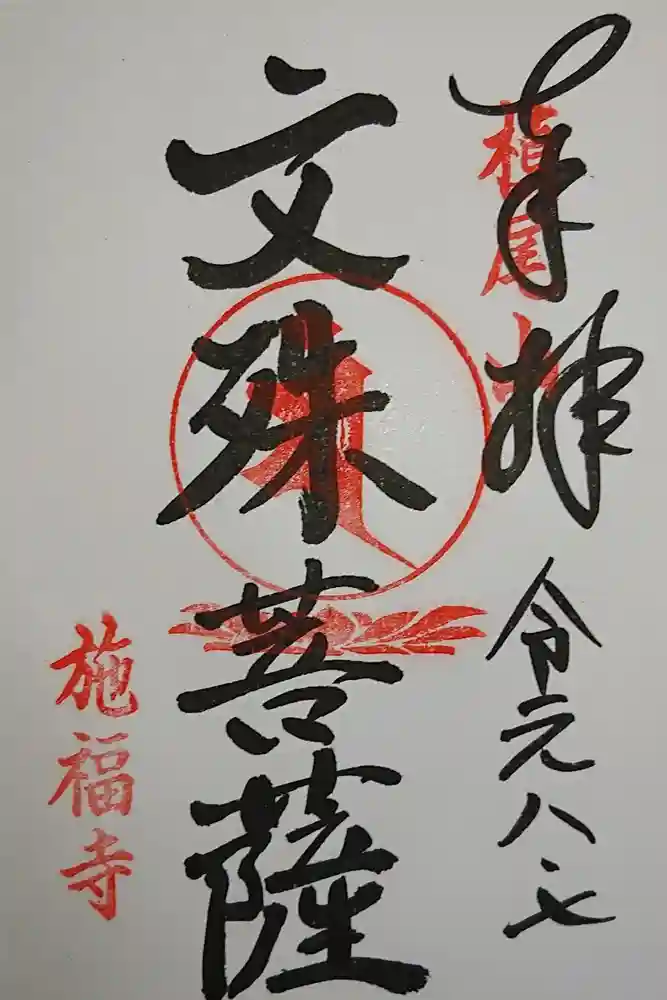 奉拝
槇尾山
令元八・七
文殊菩薩
施福寺